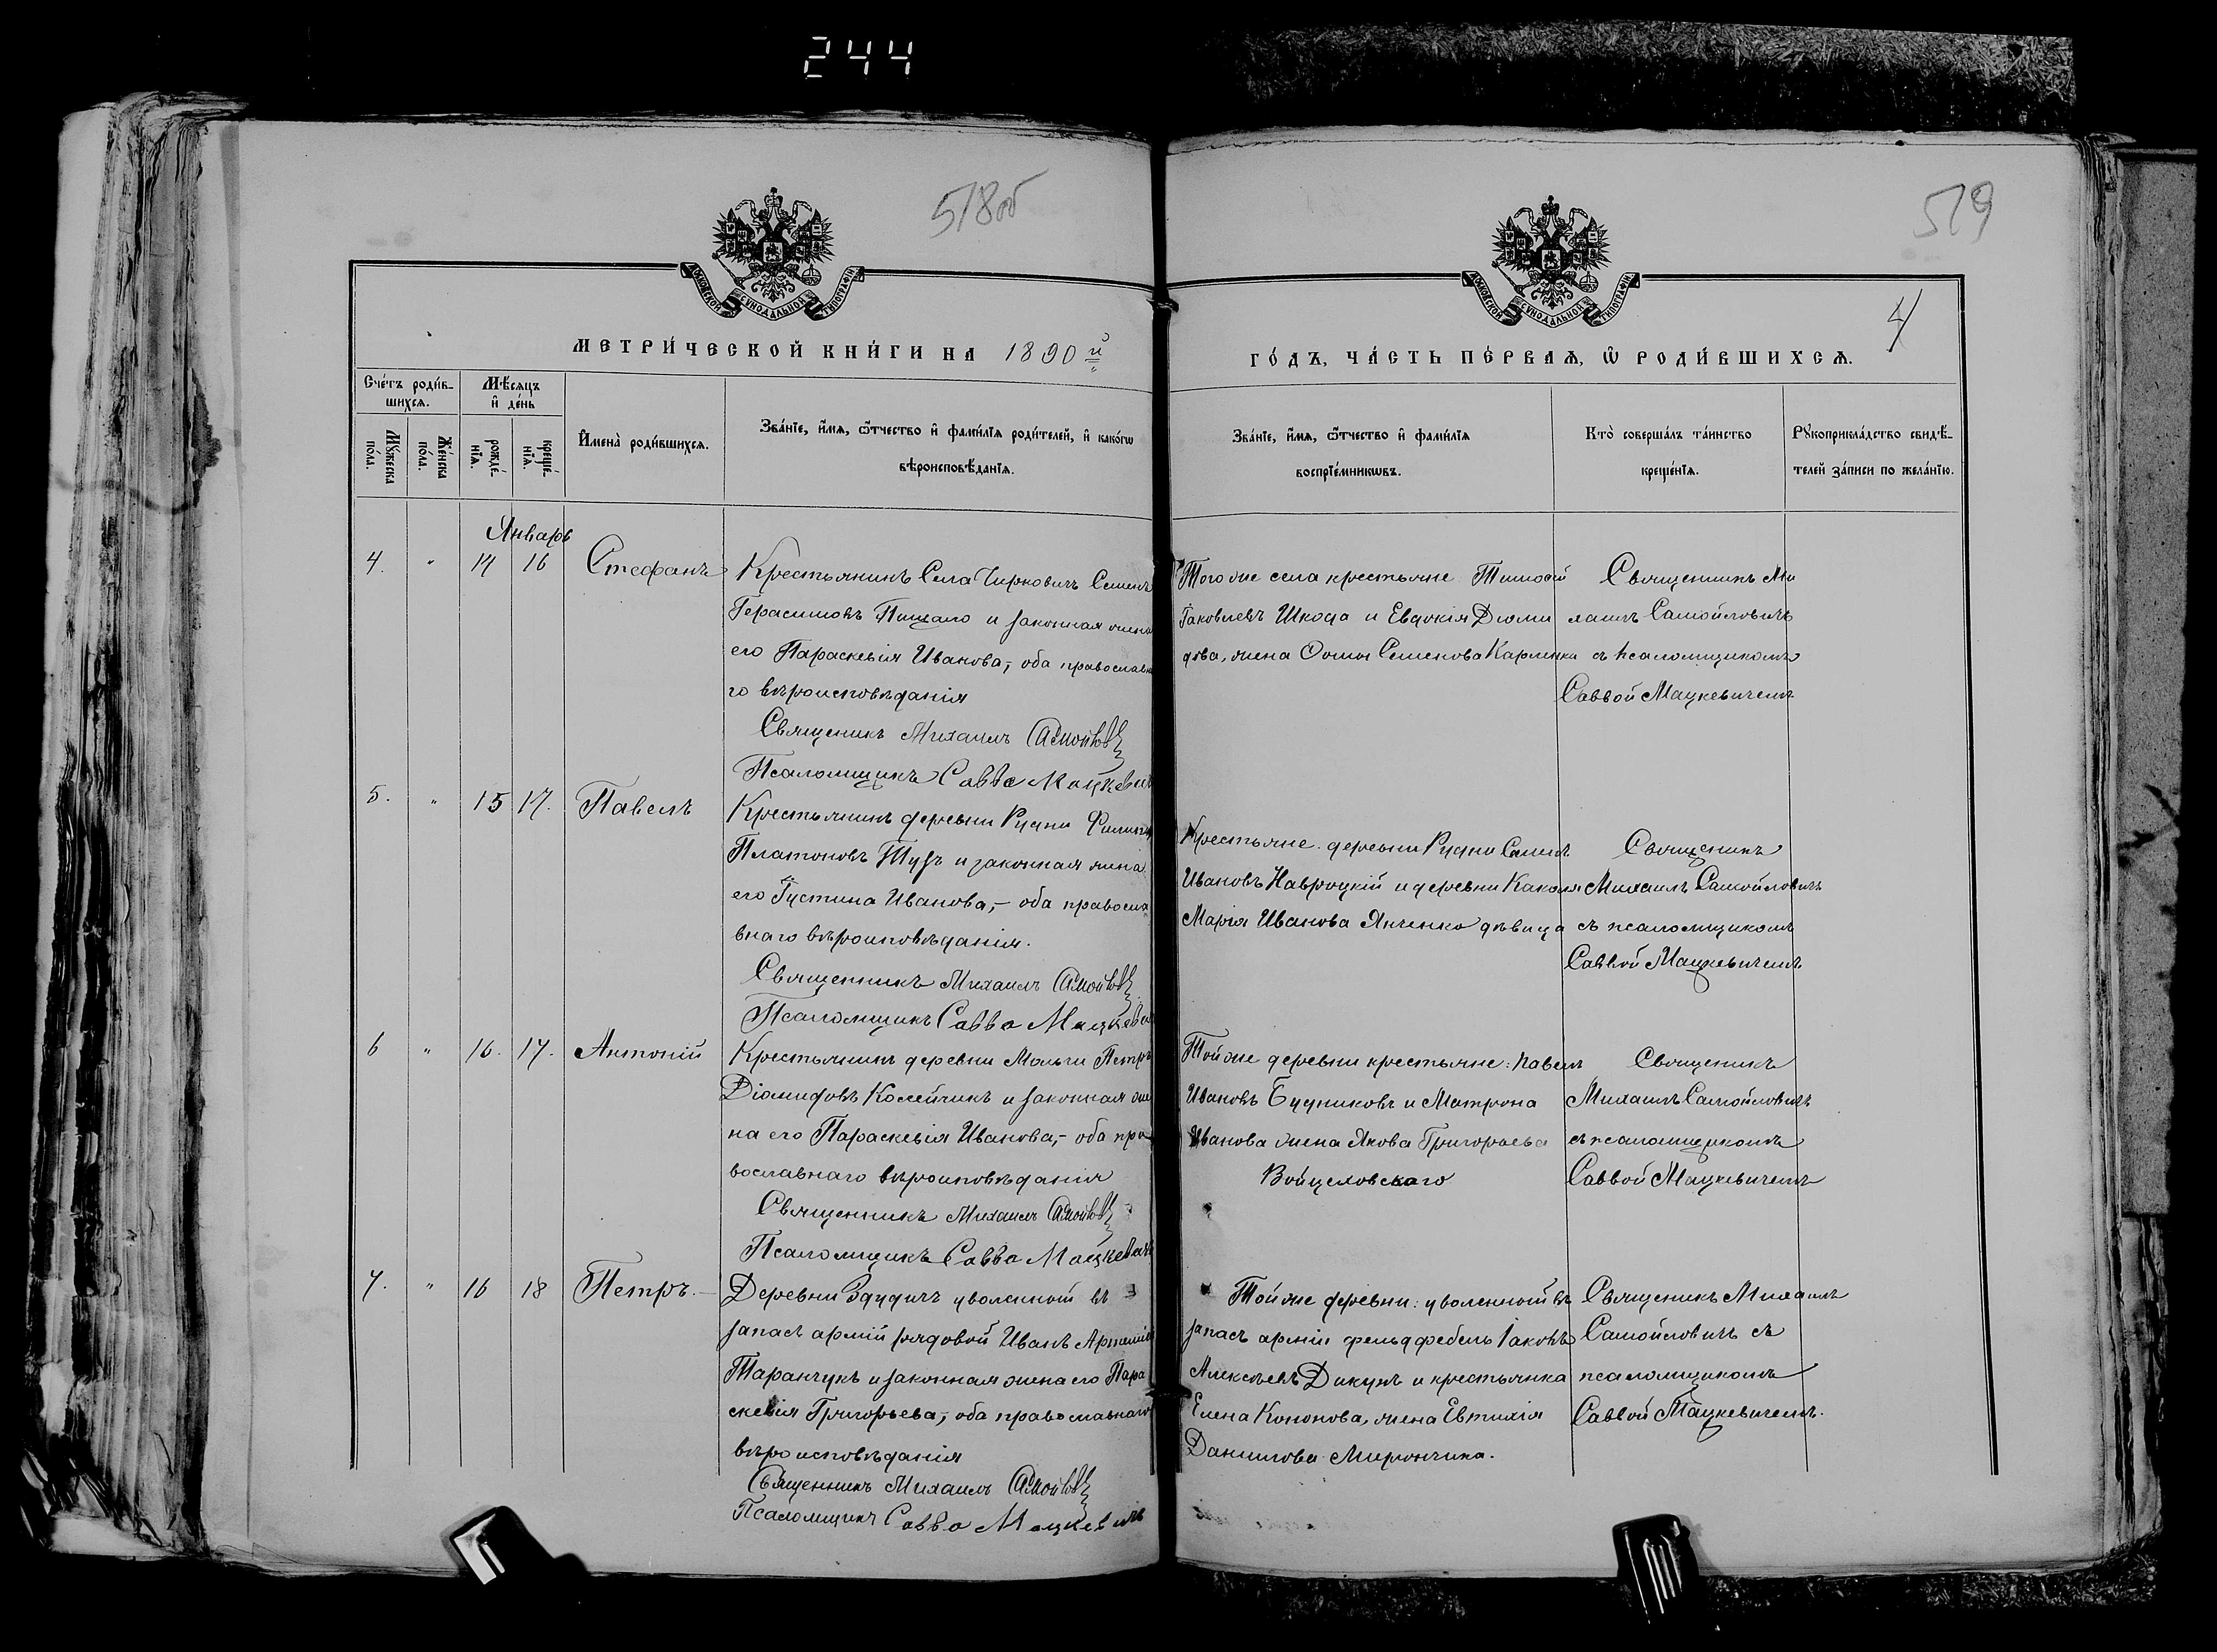 244
518об
519
4
МОСКОВСКОЙ СѴНОДАЛЬНОЙ ТИПОГРАФІИ
МОСКОВСКОЙ СѴНОДАЛЬНОЙ ТИПОГРАФІИ
МЕТРИ́ЧЕСКОЙ КНИ́ГИ НА 1890 й
ГО́ДЪ, ЧА́СТЬ ПЕ́РВАѦ, Ѡ҆ РОДИ́ВШИХСѦ.
Сче́тъ роди́в-
шихсѧ.
Мѣ́сѧцъ
и҆ де́нь
Мꙋ́жеска
по́ла.
Же́нска
по́ла.
рожде́-
нїѧ.
креще́-
нїѧ.
И҆мена̀ роди́вшихсѧ.
Зва́нїе, и҆́мѧ, ѻ҆́тчество и҆ фами́лїѧ роди́телей, и҆ како́гѡ
вѣроисповѣ́данїѧ.
Зва́нїе, и҆́мѧ, ѻ҆́тчество и҆ фами́лїѧ
воспрїе́мникѡвъ.
Кто̀ соверша́лъ та́инство
креще́нїѧ.
Рꙋкоприкла́дство свидѣ́-
телей за́писи по жела́нїю.
Январь
4. " 14 16 Стефанъ
Крестьянинъ Села Чирковичъ Семенъ
Герасимовъ Пищало и законная жена
его Параскевія Ивановa,- оба православна
го вѣроисповѣданія
Священикъ Михаилъ Самойлов
Псаломщикъ Савва Мацкевич
Того же села крестьяне Тимофей
Іаковлевъ Шкода и Евдокія Діоми
дова, жена Фомы Семенова Карпенки
Священникъ Ми
хаилъ Самойловичъ
съ псаломщикомъ
Саввой Мацкевичемъ
5. " 15 17. Павелъ
Крестьянинъ деревни Рудни Филипъ
Платоновъ Тузъ и законная жена
его Іустина Иванова,- оба правосла
внаго вѣроисповѣданія.
Священникъ Михаилъ Самойлов
Псаломщикъ Савва Мацкевич
Крестьяне деревни Рудни Самуилъ
Ивановъ Навроцкій и деревни Какаля
Марія Иванова Янченко дѣвица
Священикъ
Михаилъ Самойловичъ
съ псаломщикомъ
Саввой Мацкевичемъ
6 " 16. 17. Антоній
Крестьянинъ деревни Мольчи Петръ
Діомидовъ Колейчикъ и законная же
на его Параскевія Иванова,- оба пра
вославнаго вѣроисповѣданія
Священникъ Михаилъ Самойлов
Псаломщикъ Савва Мацкевичъ
Той же деревни крестьяне: Павелъ
Ивановъ Будниковъ и Матрона
Иванова жена Якова Григорьева
Войцеловскаго
Священикъ
Михаилъ Самойловичъ
съ псаломщикомъ
Саввой Мацкевичемъ
7. " 16 18 Петръ.
Деревни Здудичъ уволенной въ
запасъ армій рядовой Иванъ Артеміевъ
Таранчукъ и законная жена его Пара
скевія Григорьева,- оба православнаго
вѣроисповѣданія
Священникъ Михаилъ Самойлов
Псаломщикъ Савва Мацкевичъ
Той же деревни: уволенной въ
запасъ арміи фельдфебель Іаковъ
Алексѣевъ Дикунъ и крестьянка
Елена Кононова, жена Евтихія
Данилова Мирончика.
Священикъ Михаилъ
Самойловичъ съ
псаломщикомъ
Саввой Мацкевичемъ.